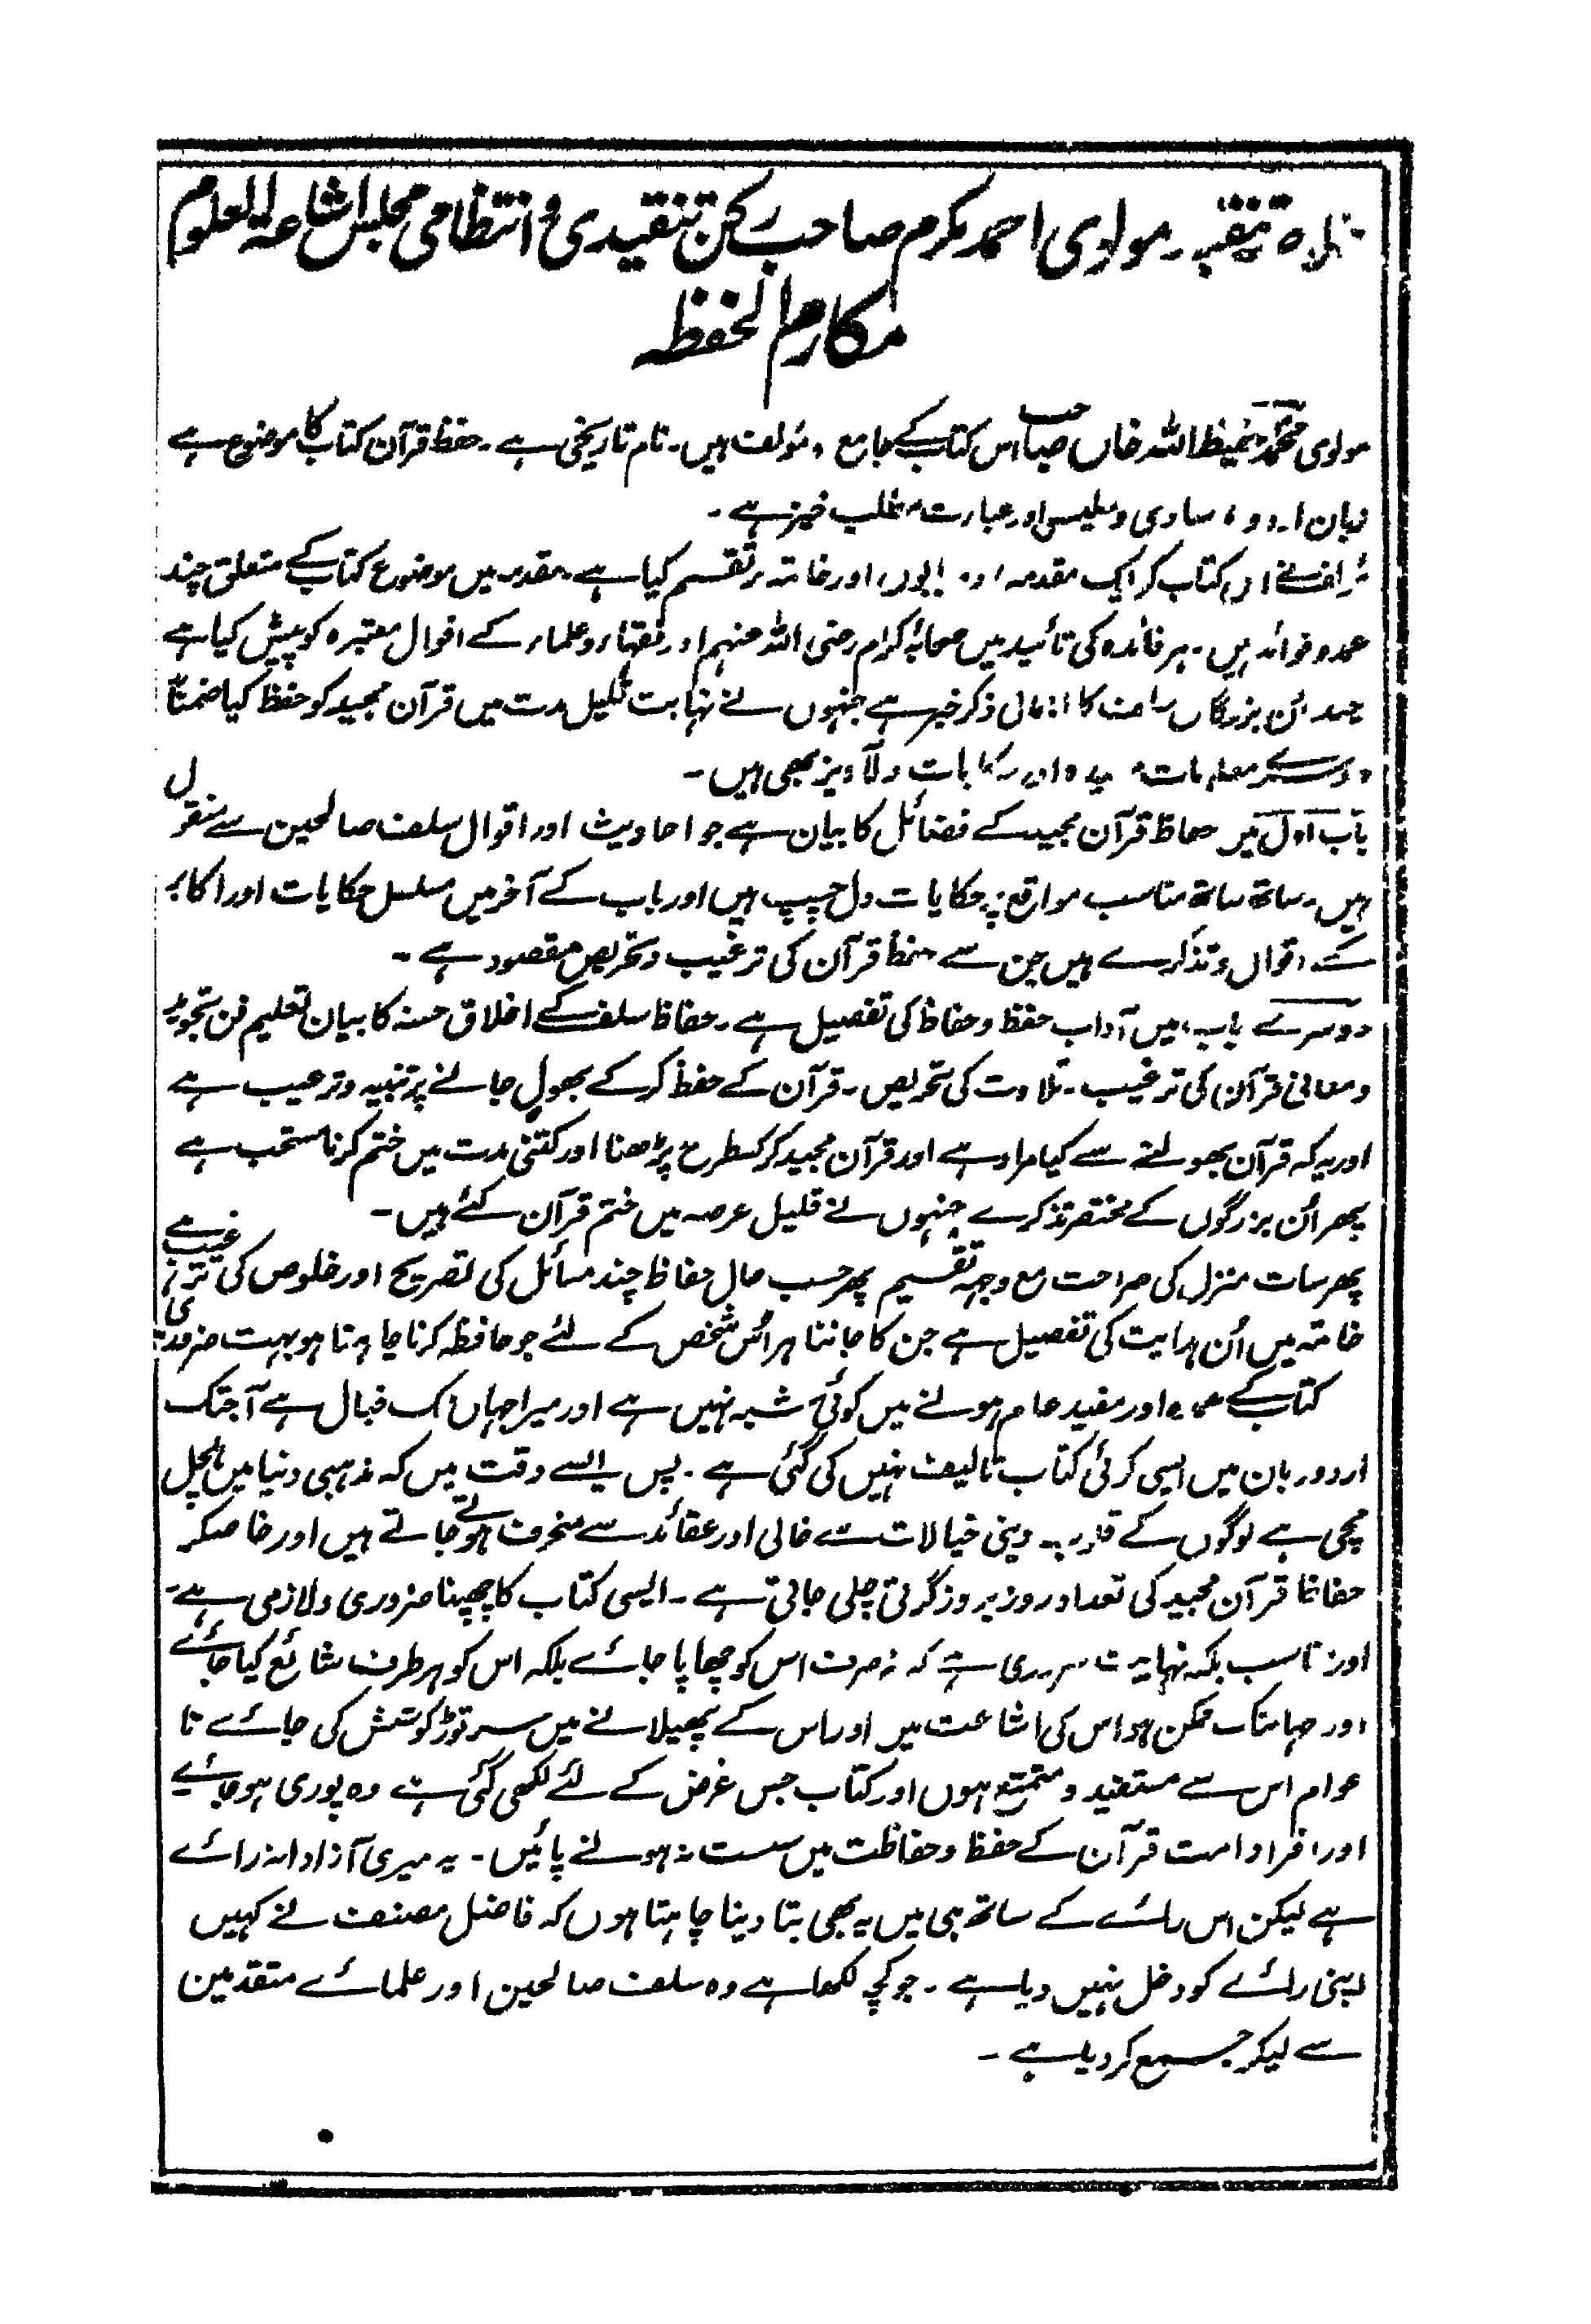 تنقید مولوی احمد مکرم صاحب رکن تنقیدی و انتظامی مجلس اشاعۃ العلوم
مکارم الحفظہ
مولوی محمد حفیظ اللہ خاں صاحب اس کتاب کے جامع و مؤلف ہیں۔ نام تاریخی ہے۔ حفظ قرآن کتاب کا موضوع ہے
زبان اردو، سادی و سلیس اور عبارت مطلب خیز ہے۔
کتاب کو ایک مقدمہ اور بابوں اور خاتمہ پر تقسیم کیا ہے۔ مقدمہ میں موضوع کتاب کے متعلق چند
عمدہ فوائد ہیں۔ ہر فائدہ کی تائید میں صحابہ کرام رضی اللہ عنہم اور فقہاء و علماء کے اقوال معتبرہ کو پیش کیا ہے
اُن بزرگان کا ذکر خیر ہے جنہوں نے نہایت قلیل مدت میں قرآن مجید کو حفظ کیا ضمناً
دوسرے معلومات حکایات دلآویز بھی ہیں۔
باب اول میں حفاظ قرآن مجید کے فضائل کا بیان ہے جو احادیث اور اقوال سلف صالحین سے منقول
ہیں۔ ساتھ ساتھ مناسب مواقع پر حکایات دلچسپ ہیں اور باب کے آخر میں مسلسل حکایات اور اکابر
کے اقوال و تذکرے ہیں جن سے حفظ قرآن کی ترغیب و تحریص مقصود ہے۔
دوسرے باب میں آداب حفظ و حفاظ کی تفصیل ہے۔ حفاظ سلف کے اخلاق حسنہ کا بیان تعلیم فن تجوید
و معانی قرآن کی ترغیب۔ تلاوت کی تحریص۔ قرآن کے حفظ کر کے بھول جانے پر تنبیہ و ترہیب ہے
اور یہ کہ قرآن بھولنے سے کیا مراد ہے اور قرآن مجید کو کسطرح پڑھنا اور کتنی مدت میں ختم کرنا مستحب ہے
پھر اُن بزرگوں کے مختصر تذکرے جنہوں نے قلیل عرصہ میں ختم قرآن کئے ہیں۔
پھر سات منزل کی صراحت مع وجہ تقسیم پھر حسب حال حفاظ چند مسائل کی تصریح اور خلوص کی ترغیب ہے
خاتمہ میں اُن ہدایت کی تفصیل ہے جن کا جاننا ہر اُس شخص کے لئے جو حافظہ کرنا چاہتا ہو بہت ضروری
کتاب کے عمدہ اور مفید عام ہونے میں کوئی شبہ نہیں ہے اور میرا جہاں تک خیال ہے آجتک
اردو زبان میں ایسی کوئی کتاب تالیف نہیں کی گئی ہے۔ پس ایسے وقت میں کہ مذہبی دنیا میں ہلچل
مچی ہے لوگوں کے قلوب دینی خیالات سے خالی اور عقائد سے منحرف ہوتے جاتے ہیں اور خاصکر
حفاظ قرآن مجید کی تعداد روز بروز گرتی چلی جاتی ہے۔ ایسی کتاب کا چھپنا ضروری و لازمی ہے۔
اور مناسب بلکہ نہایت ضروری ہے کہ نہ صرف اس کو چھاپا جائے بلکہ اس کو ہر طرف شائع کیا جائے
اور جہانتک ممکن ہو اس کی اشاعت میں اور اس کے پھیلانے میں سر توڑ کوشش کی جائے تا
عوام اس سے مستفید و متمتع ہوں اور کتاب جس غرض کے لئے لکھی گئی ہے وہ پوری ہو جائے
اور افراد امت قرآن کے حفظ و حفاظت میں سست نہ ہونے پائیں۔ یہ میری آزادانہ رائے
ہے لیکن اس رائے کے ساتھ ہی میں یہ بھی بتا دینا چاہتا ہوں کہ فاضل مصنف نے کہیں
اپنی رائے کو دخل نہیں دیا ہے۔ جو کچھ لکھا ہے وہ سلف صالحین اور علمائے متقدمین
سے لیکر جمع کر دیا ہے۔